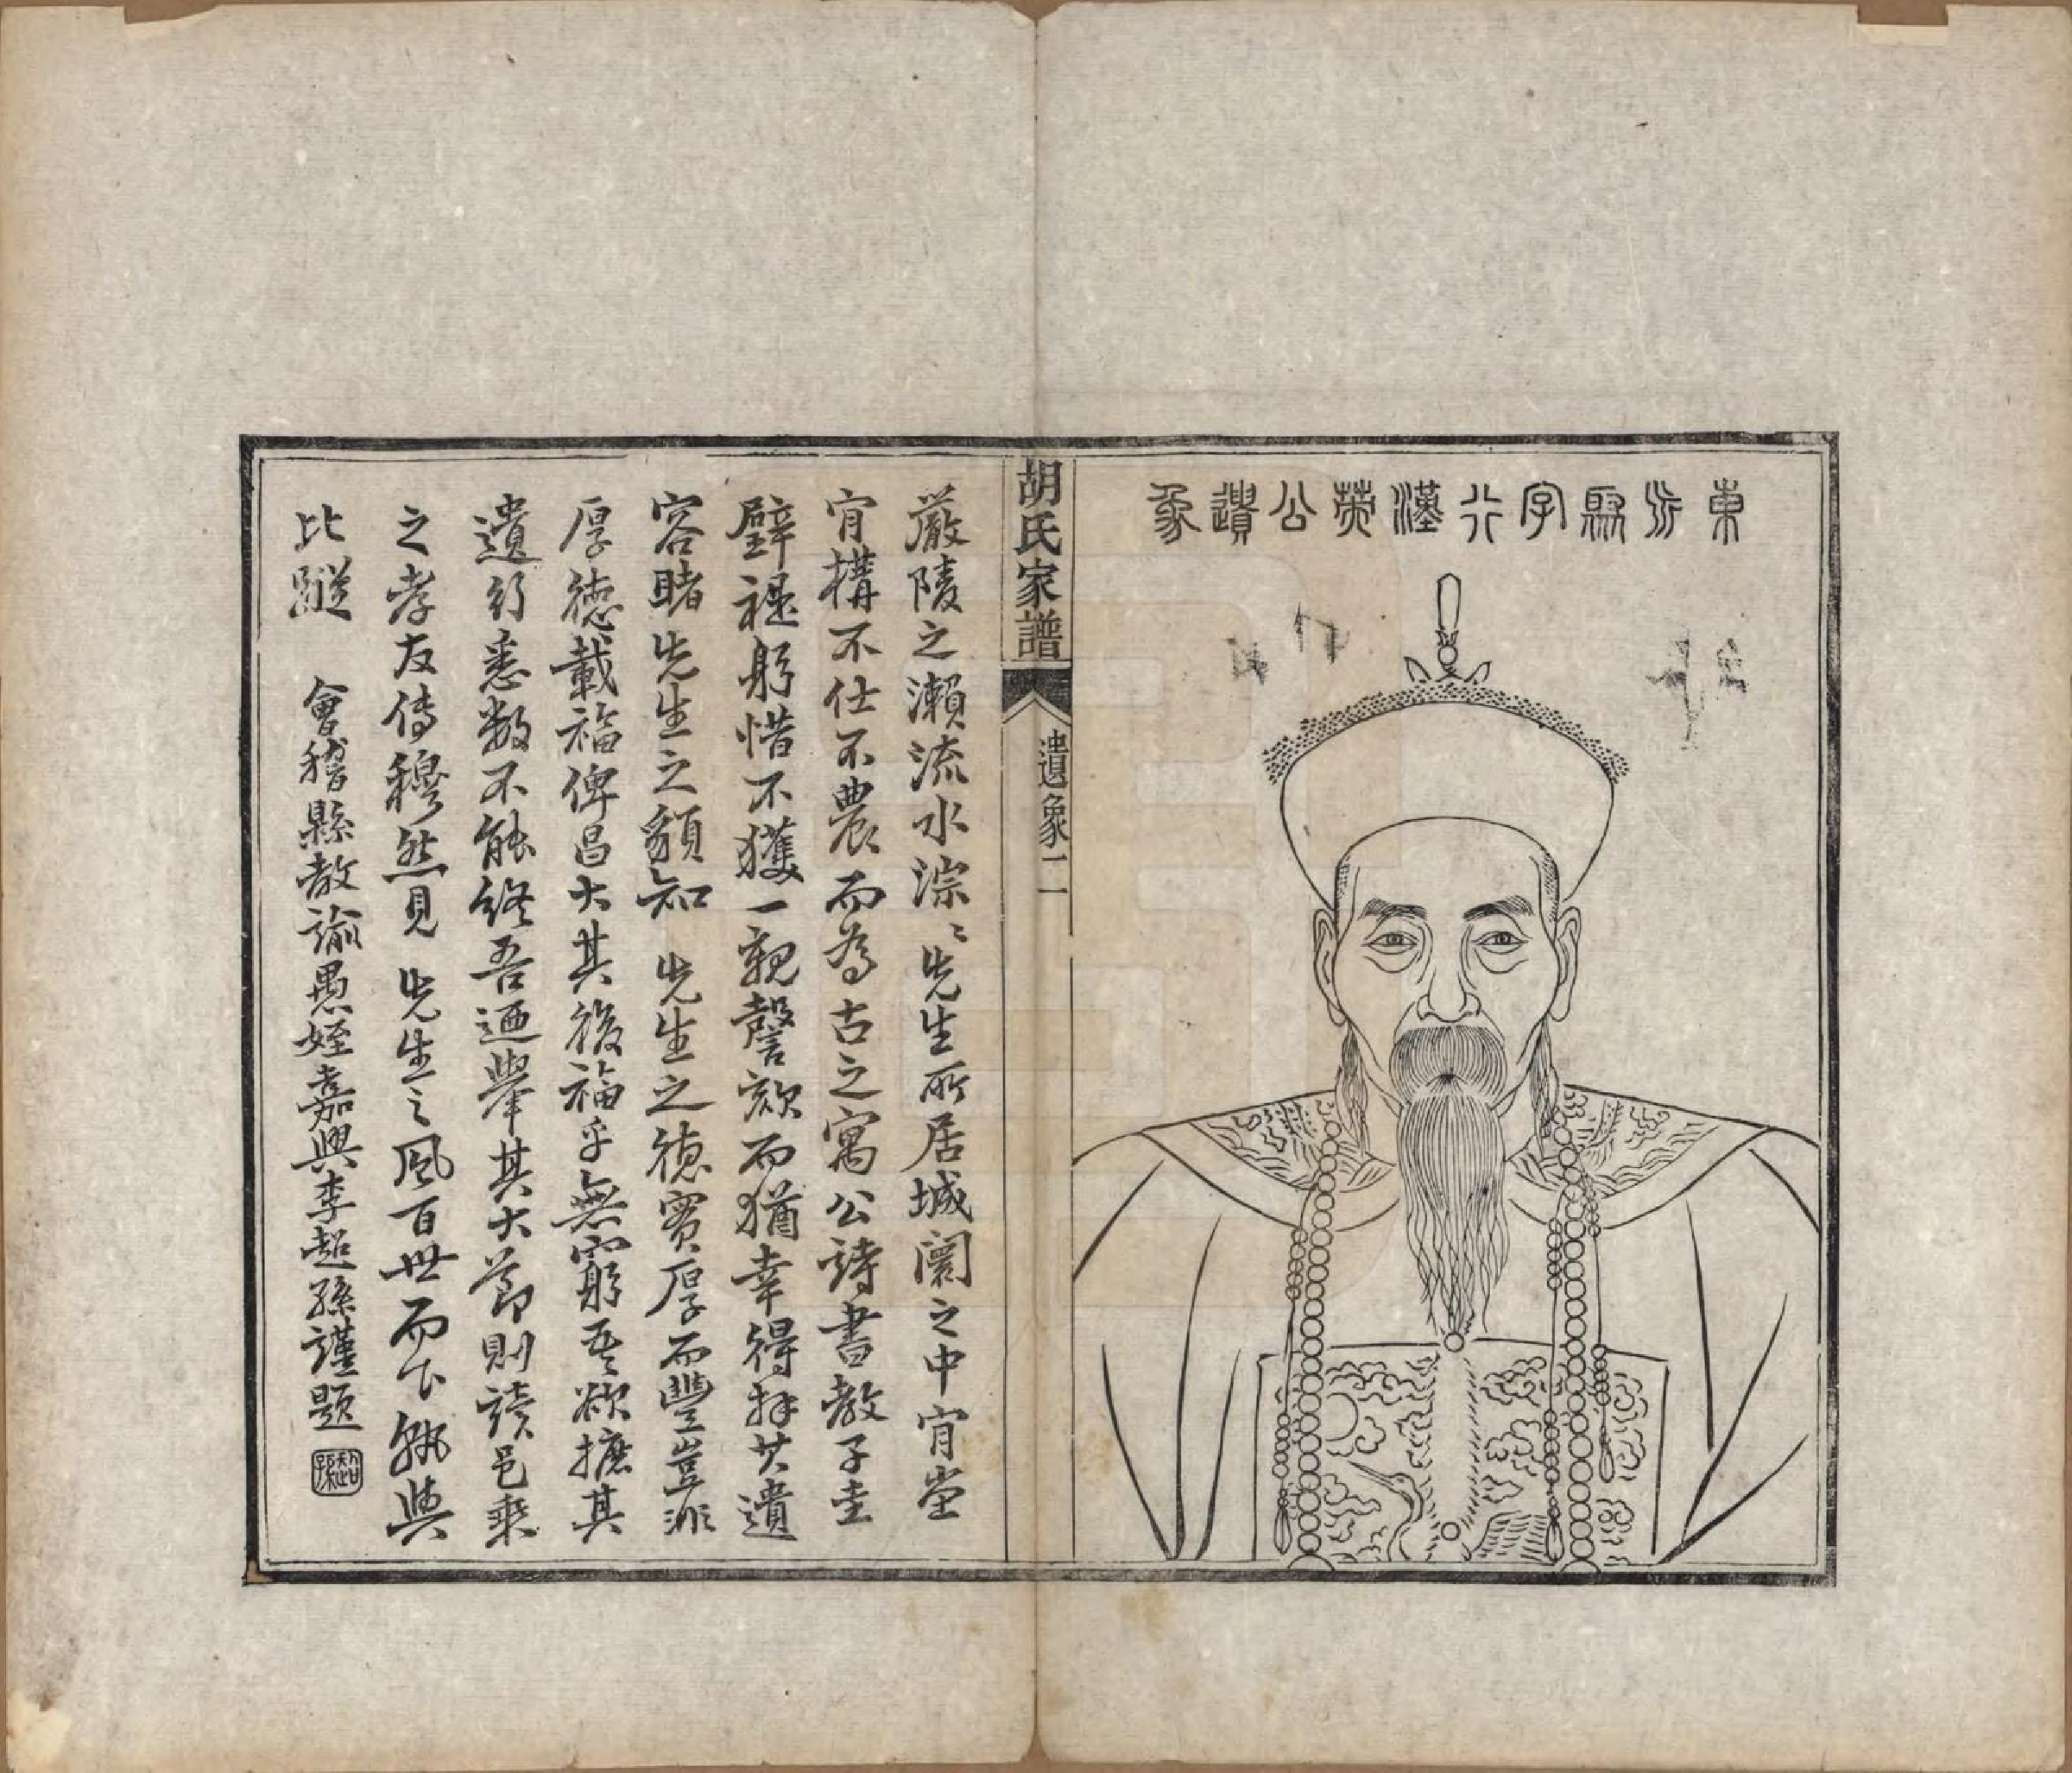 東 字行漢英公遺象
胡氏家譜
遺象二
嚴陵之瀨流水淙〻先生所居城闉之中肯堂
肯構不仕不農而為古之寓公詩書教子圭
璧禔躬惜不獲一親謦欬而猶幸得拜其遺
容睹先生之額知 先生之德實厚而豐豈非
厚德載福俾昌大其後福乎無窮吾欲摭其
遺行悉數不能終吾迺舉其大節則讀邑乘
之孝友傳穆然見 先生之風百世而下孰與
比蹤 會稽縣教諭愚姪嘉興李超孫謹題
超孫